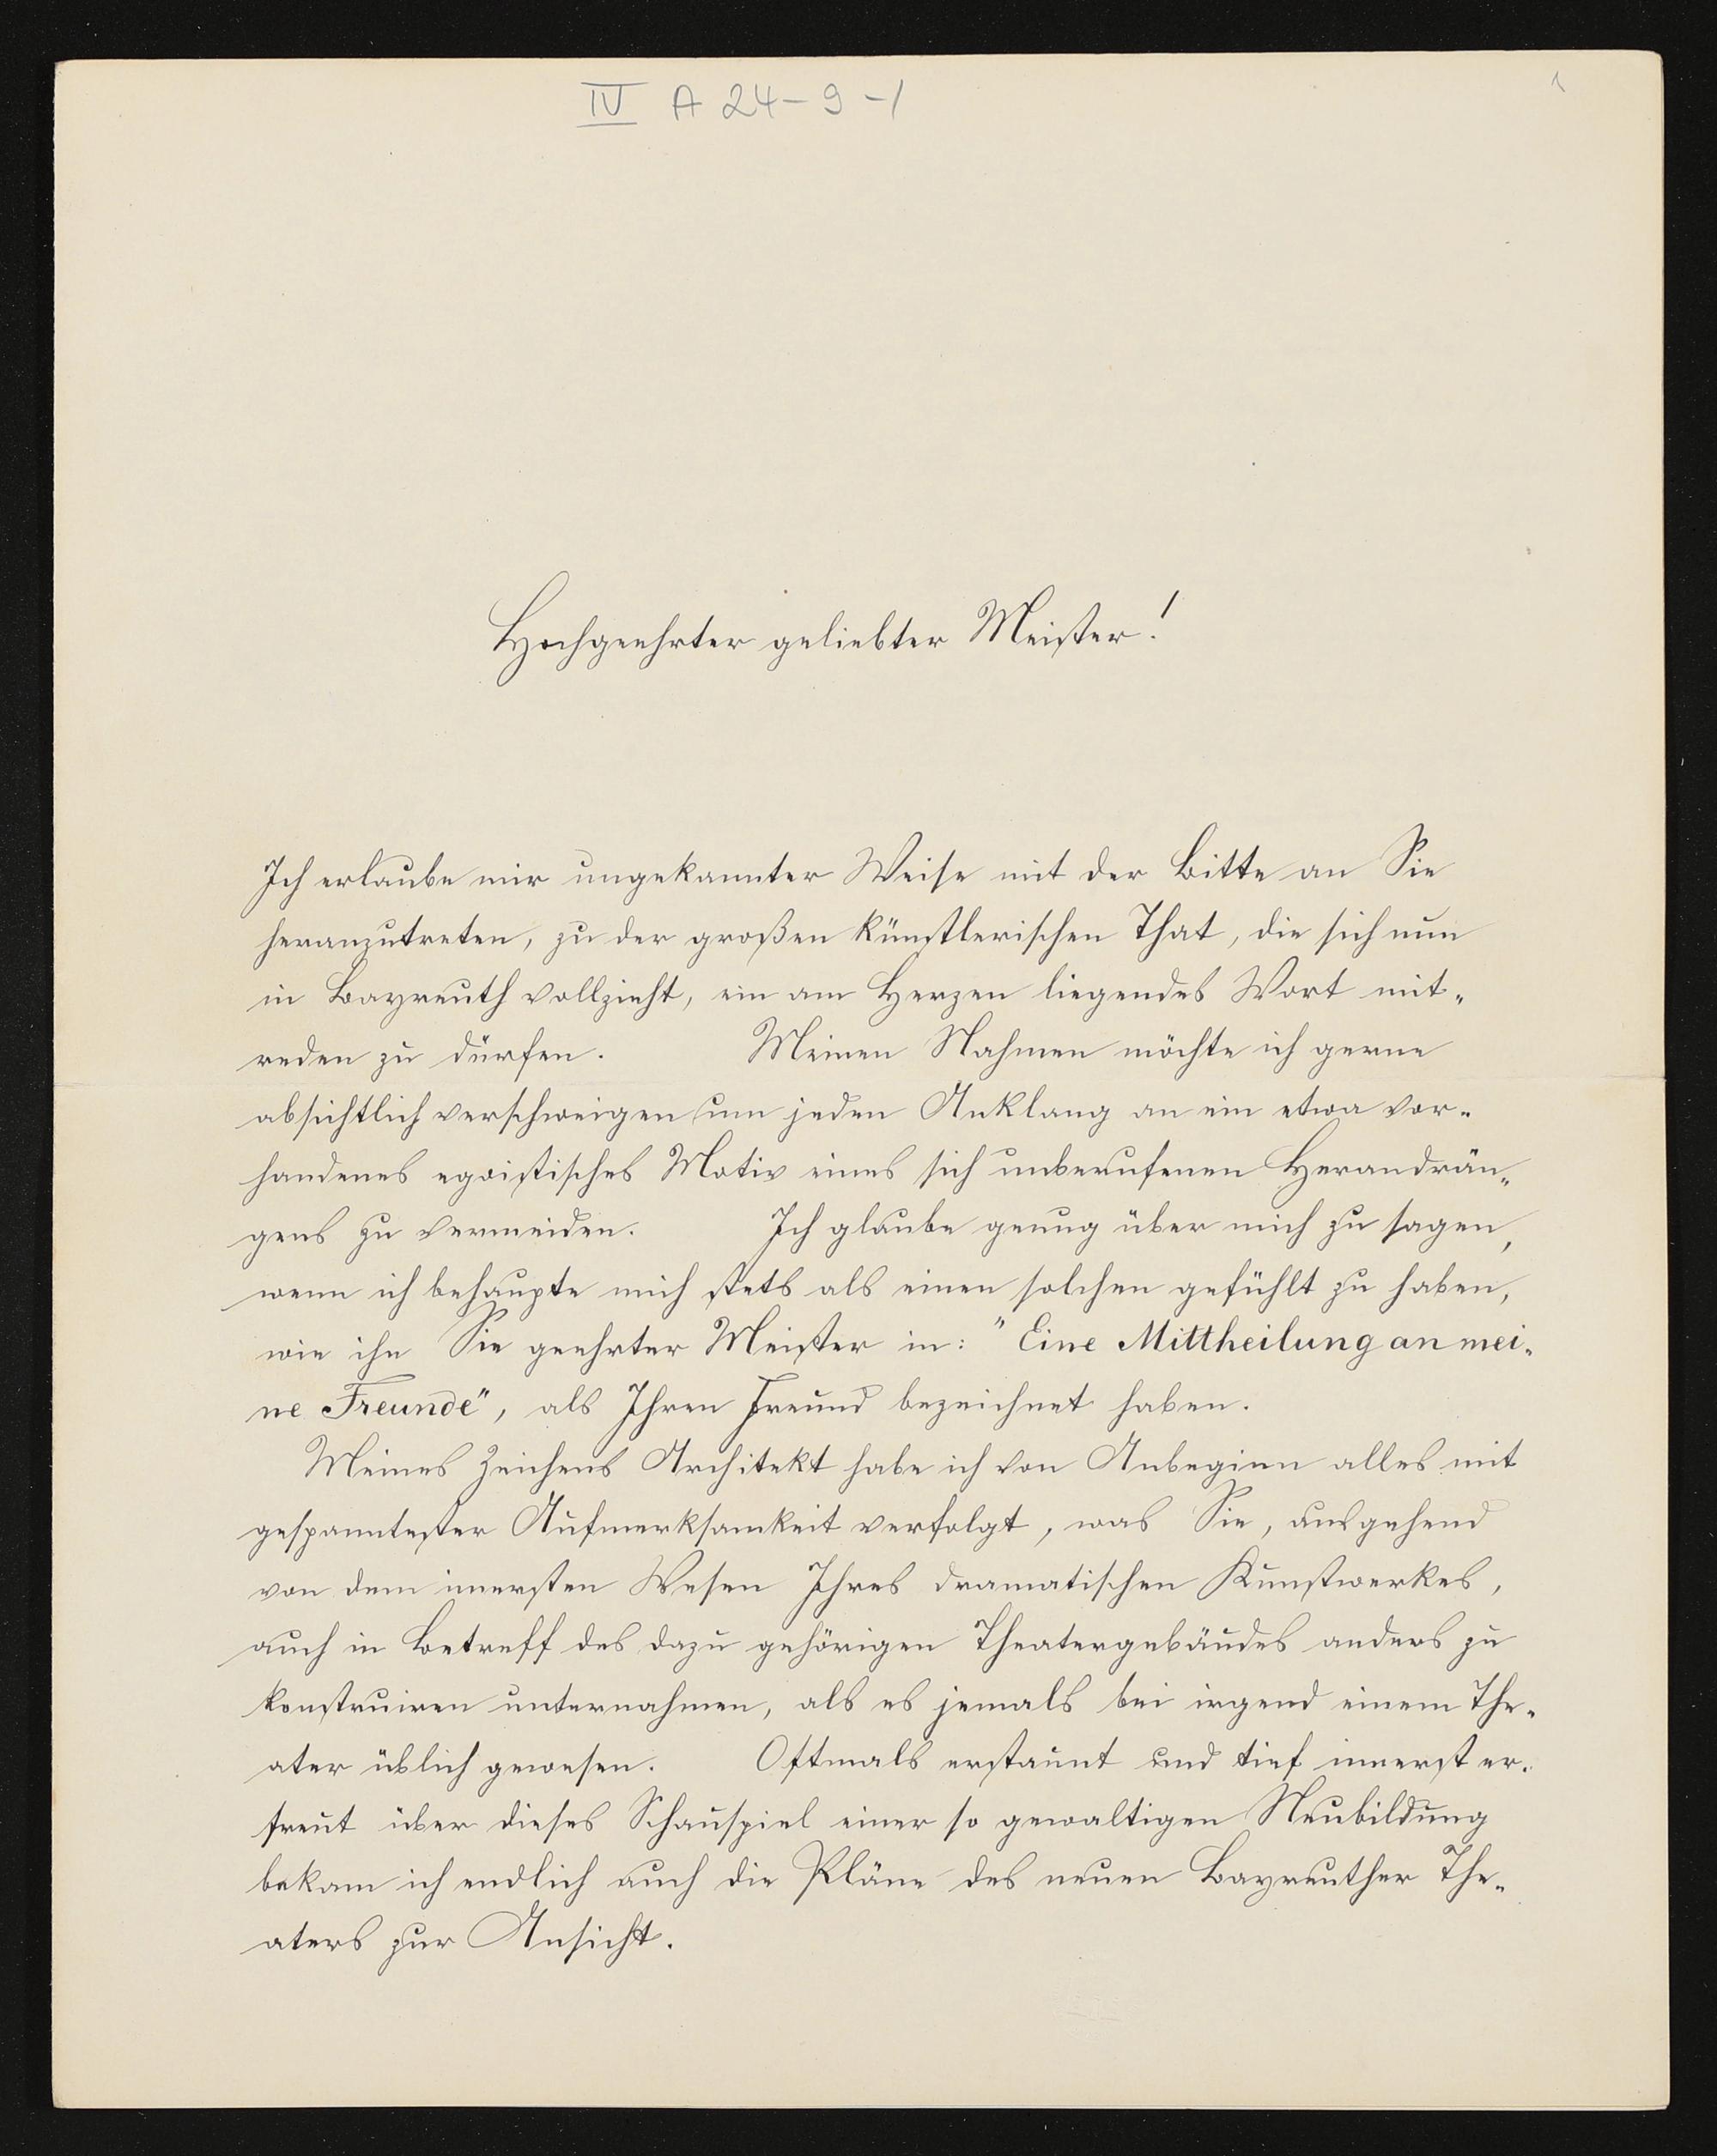 IV A 24-9-1
1
Hochgeehrter geliebter Meister!
Ich erlaube mir ungekannter Weise mit der Bitte an Sie
heranzutreten, zu der großen künstlerischen That, die sich nun
in Bayreuth vollzieht, ein am Herzen liegendes Wort mit-
reden zu dürfen. Meinen Nahmen möchte ich gerne
absichtlich verschweigen um jeden Anklang an ein etwa vor-
handenes egoistisches Motiv eines sich unberufenen Herandrän-
gens zu vermeiden. Ich glaube genug über mich zu sagen,
wenn ich behaupte mich stets als einen solchen gefühlt zu haben,
wie ihn Sie geehrter Meister in: "Eine Mittheilung an mei-
ne Freunde", als Ihren Freund bezeichnet haben.
Meines Zeichens Architekt habe ich von Anbeginn alles mit
gespanntester Aufmerksamkeit verfolgt, was Sie, ausgehend
von dem innersten Wesen Ihres dramatischen Kunstwerkes,
auch in Betreff des dazu gehörigen Theatergebäudes anders zu
konstruiren unternahmen, als es jemals bei irgend einem The-
ater üblich gewesen. Oftmals erstaunt und tief innerst er-
freut über dieses Schauspiel einer so gewaltigen Neubildung
bekam ich endlich auch die Pläne des neuen Bayreuther The-
aters zur Ansicht.